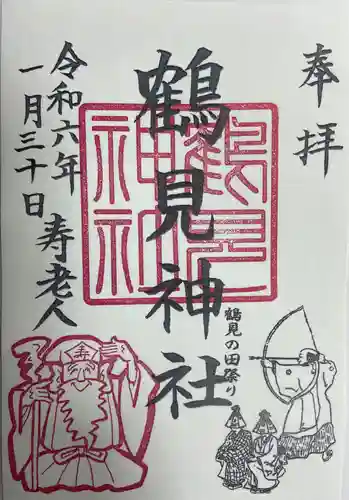 奉拝
鶴見神社
鶴見神社
鶴見の田祭り
令和六年
一月三十日
寿老人